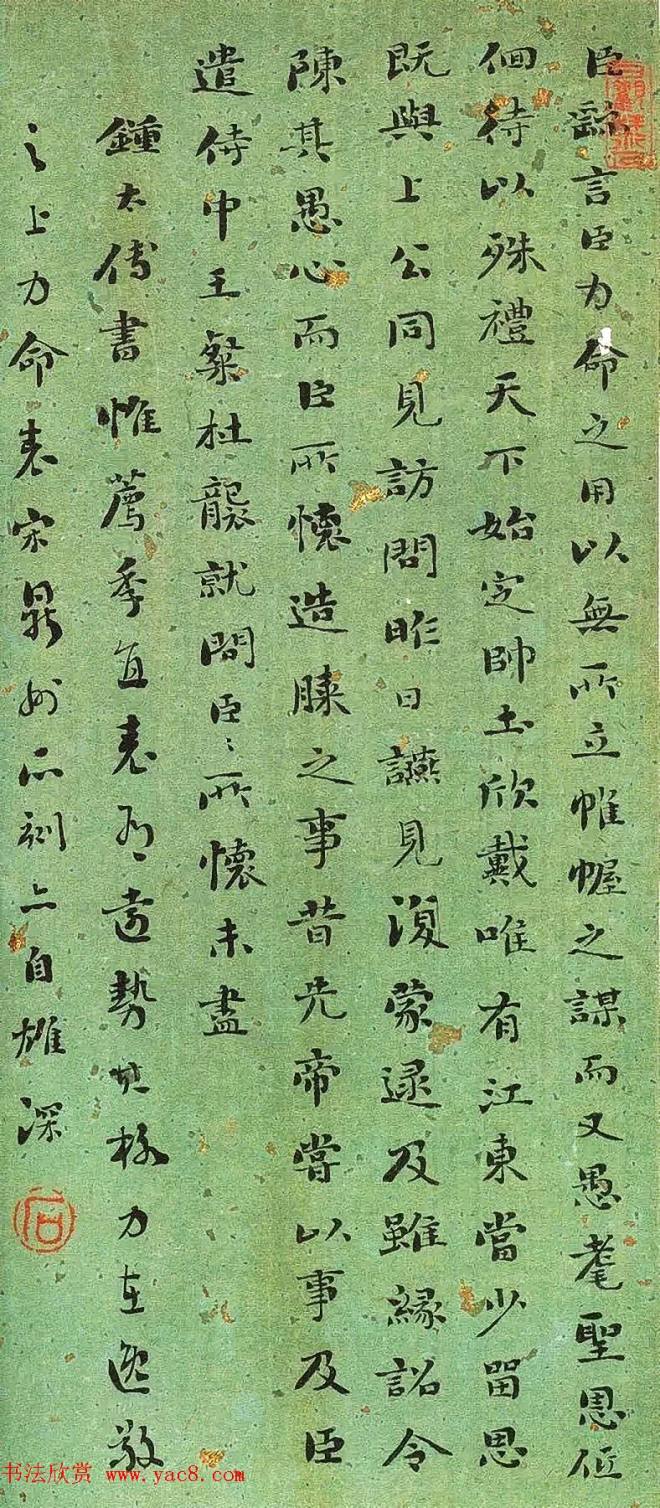 臣繇言臣力命之用以無所立帷幄之謀而又愚耄聖恩低
佪待以殊禮天下始定帥土欣戴唯有江東當少留思
既與上公同見訪問昨日讌見復蒙逮及雖緣詔令
陳其愚心而臣所懷造膝之事昔先帝嘗以事及臣
遣侍中王粲杜襲就問臣〻所懷未盡
鍾太傅書惟薦季直表遠勢其格力在逸敬
之上力命表宋鼎州所刻亦自雄深
石
书法欣赏 www.yac8.com